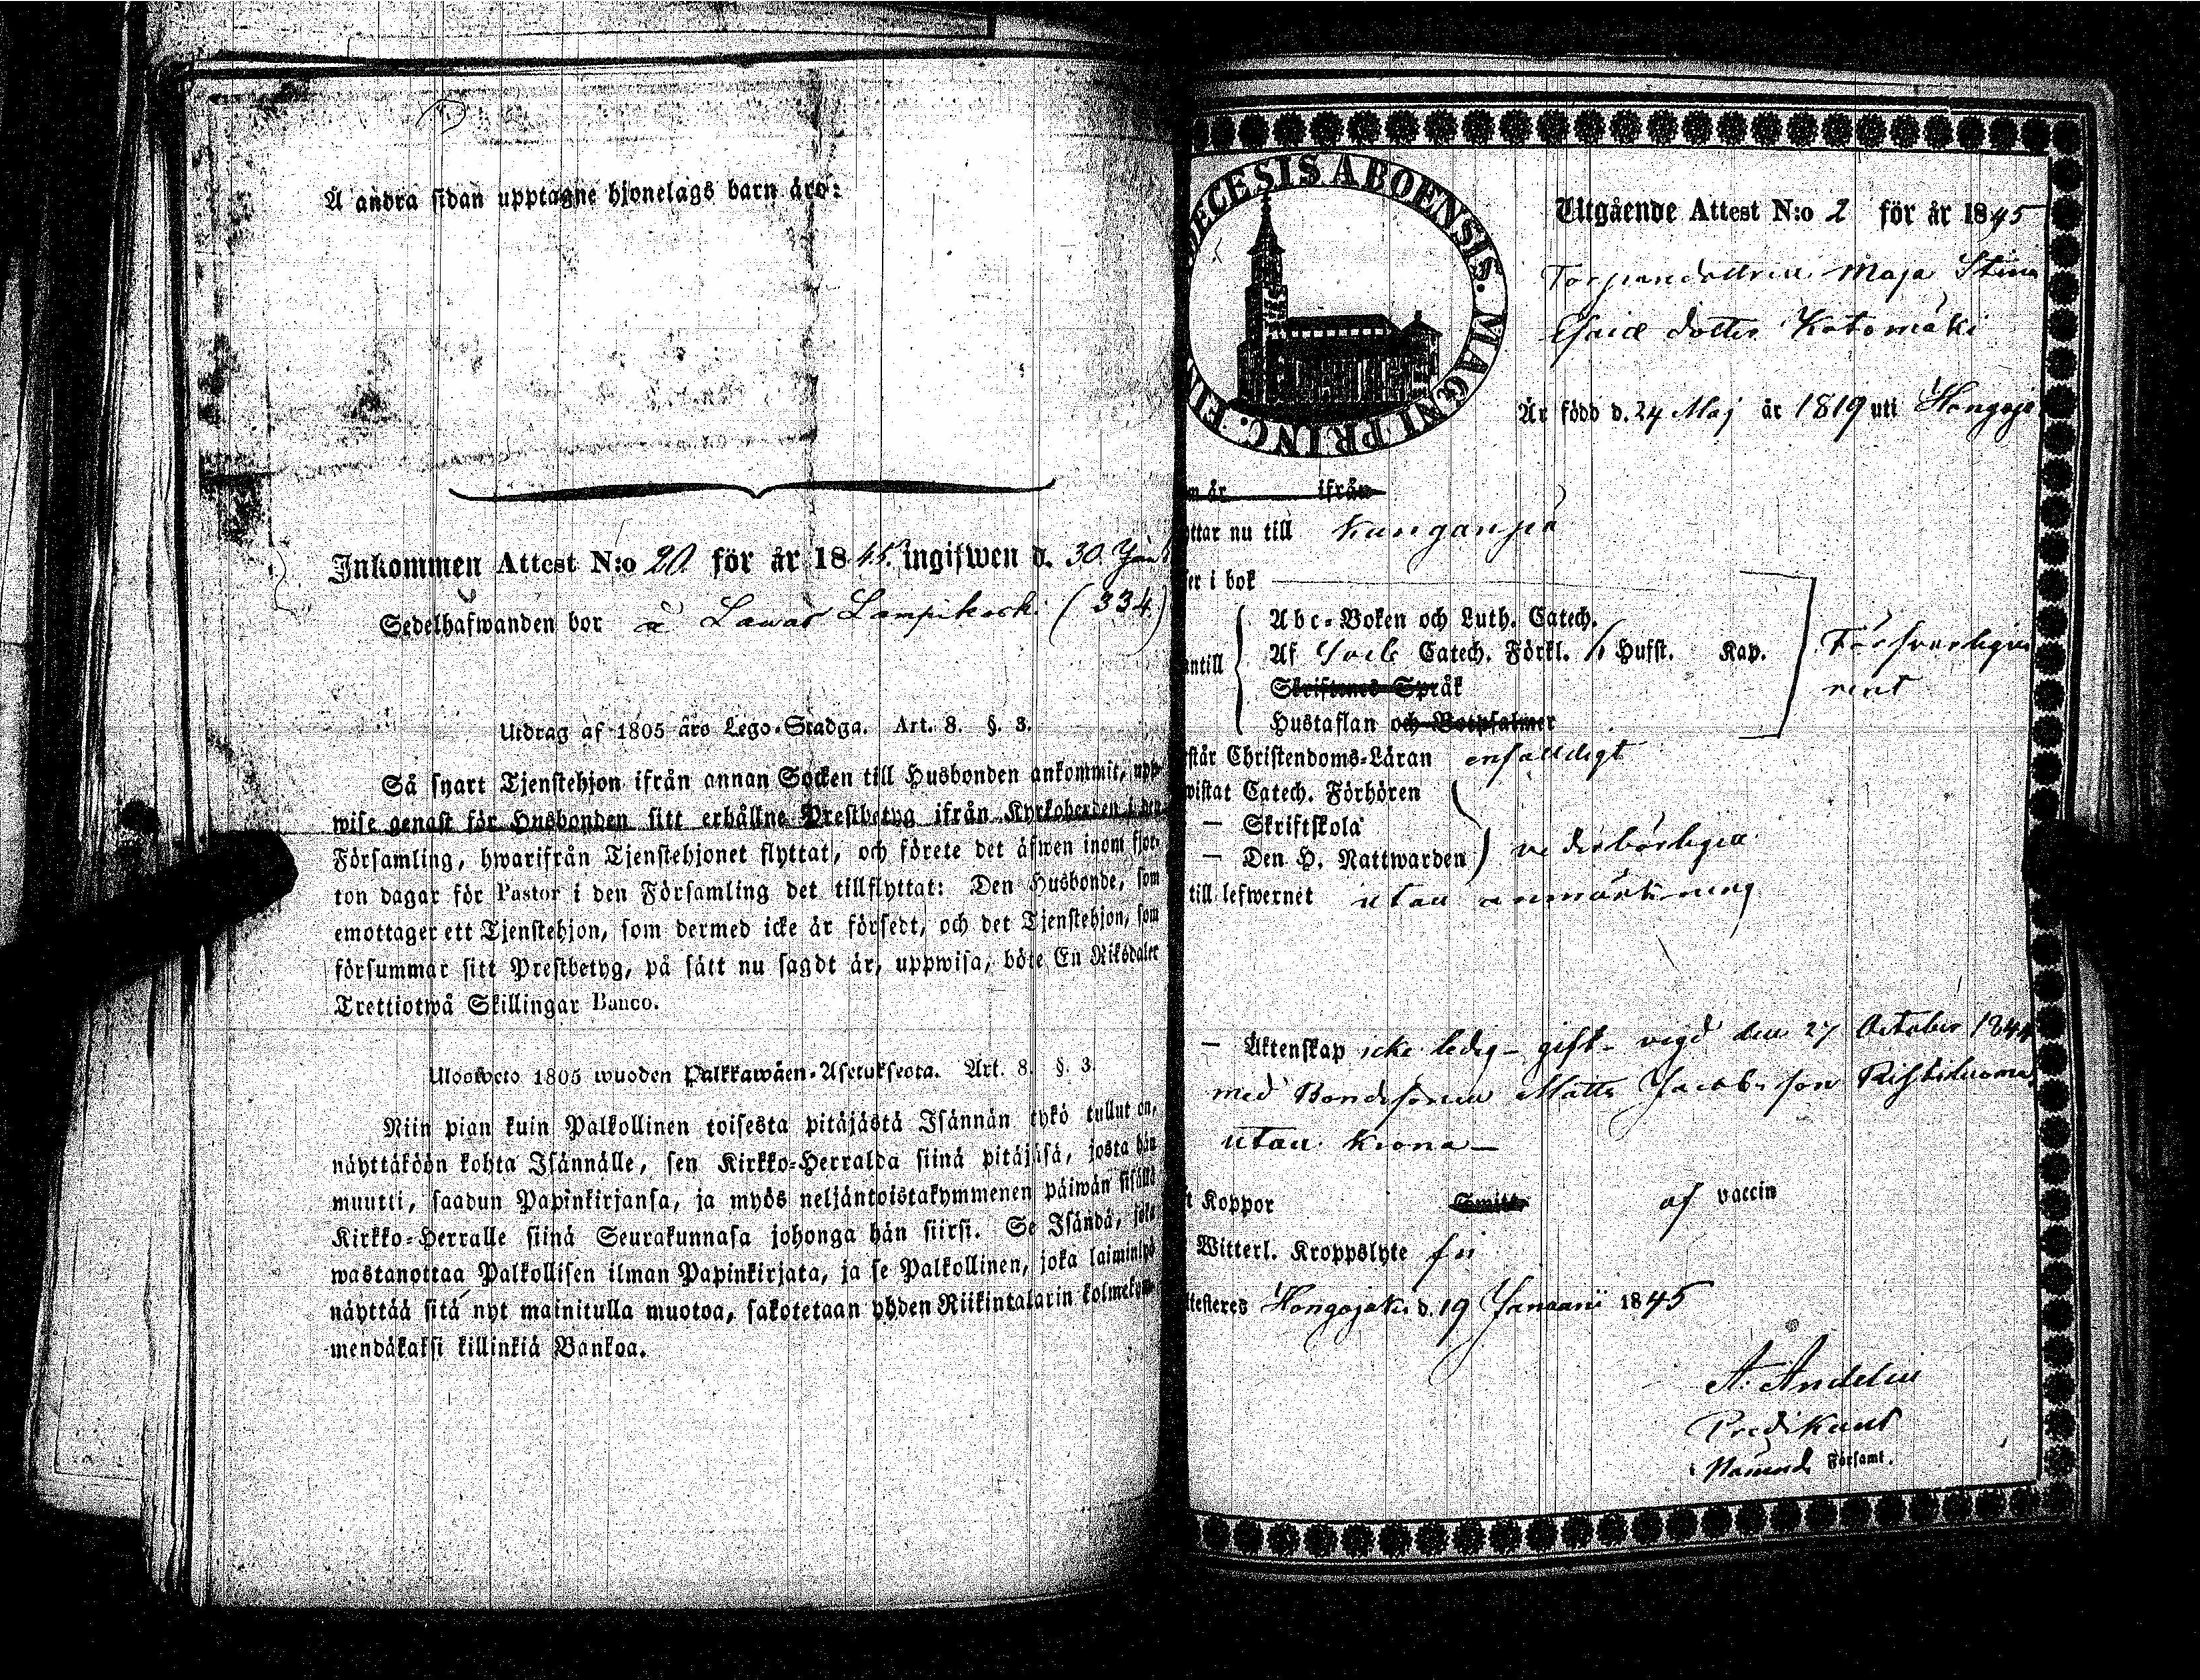 Å andra sidan upptagne hjonelags barn äro:
Inkommen Attest N:o 20 för år 1845. ingifwen d. 30. Jan
Sedelhafwanden bor å Lawas Lampikoski (334)
Utdrag af 1805 års Lego-Stadga. Art. 8. §. 3.
Så snart Tjenstehjon ifrån annan Socken till Husbonden ankommit, upp-
wise genast för Husbonden sitt erhållne Prestbetyg ifrån Kyrkoherden i den
Församling, hwarifrån Tjenstehjonet flyttat, och förete det äfwen inom fjor-
ton dagar för Pastor i den Församling det tillflyttat: Den Husbonde, som
emottager ett Tjenstehjon, som dermed icke är försedt, och det Tjenstehjon, som
försummar sitt Prestbetyg, på sätt nu sagdt är, uppwisa, böte En Riksdaler
Trettiotwå Skillingar Banco.
Ulosweto 1805 wuoden Palkkawäen-Asetuksesta. Art. 8. §. 3.
Niin pian kuin Palkollinen toisesta pitäjästä Isännän tykö tullut on,
näyttäköön kohta Isännälle, sen Kirkko-Herralda siinä pitäjäsä, josta hän
muutti, saadun Papinkirjansa, ja myös neljäntoistakymmenen päiwän sisällä
Kirkko-Herralle siinä Seurakunnasa johonga hän siirsi. Se Isändä, joka
wastanottaa Palkollisen ilman Papinkirjata, ja se Palkollinen, joka laiminlyö
näyttää sitä nyt mainitulla muotoa, sakotetaan yhden Riikintalarin kolmekym-
mendäkaksi killinkiä Bankoa.
DECESIS ABOENSIS. MAGNI PRINC. FIN
Utgående Attest N:o 2 för år 1845
Torparedottren Maja Stina
Esaie dotter Katomäki
Är född d. 24 Maj år 1819 uti Hongojo
m år ifrån
ttar nu till Kanganpä
er i bok
Abc-Boken och Luth. Catech.
antill Af Svib Catech. Förkl. Husst. Kap. Försvarligen
Skriftenes Språk rent
Hustaflan och Botpsalmer
står Christendoms-Läran enfaldigt
wistat Catech. Förhören
— Skriftskola
— Den H. Nattwarden vederbörligen
till lefwernet utan anmärkning
— Äktenskap icke ledig - gift - vigd den 27 October 1844
med Bondesonen Matts Jacobsson Ristiluoma
utan krona —
t Koppor af vaccin
Witterl. Kroppslyte fri
ttesteres Hongojoki d. 19 Januarii 1845
A. Andelin
Predikant
Församl.